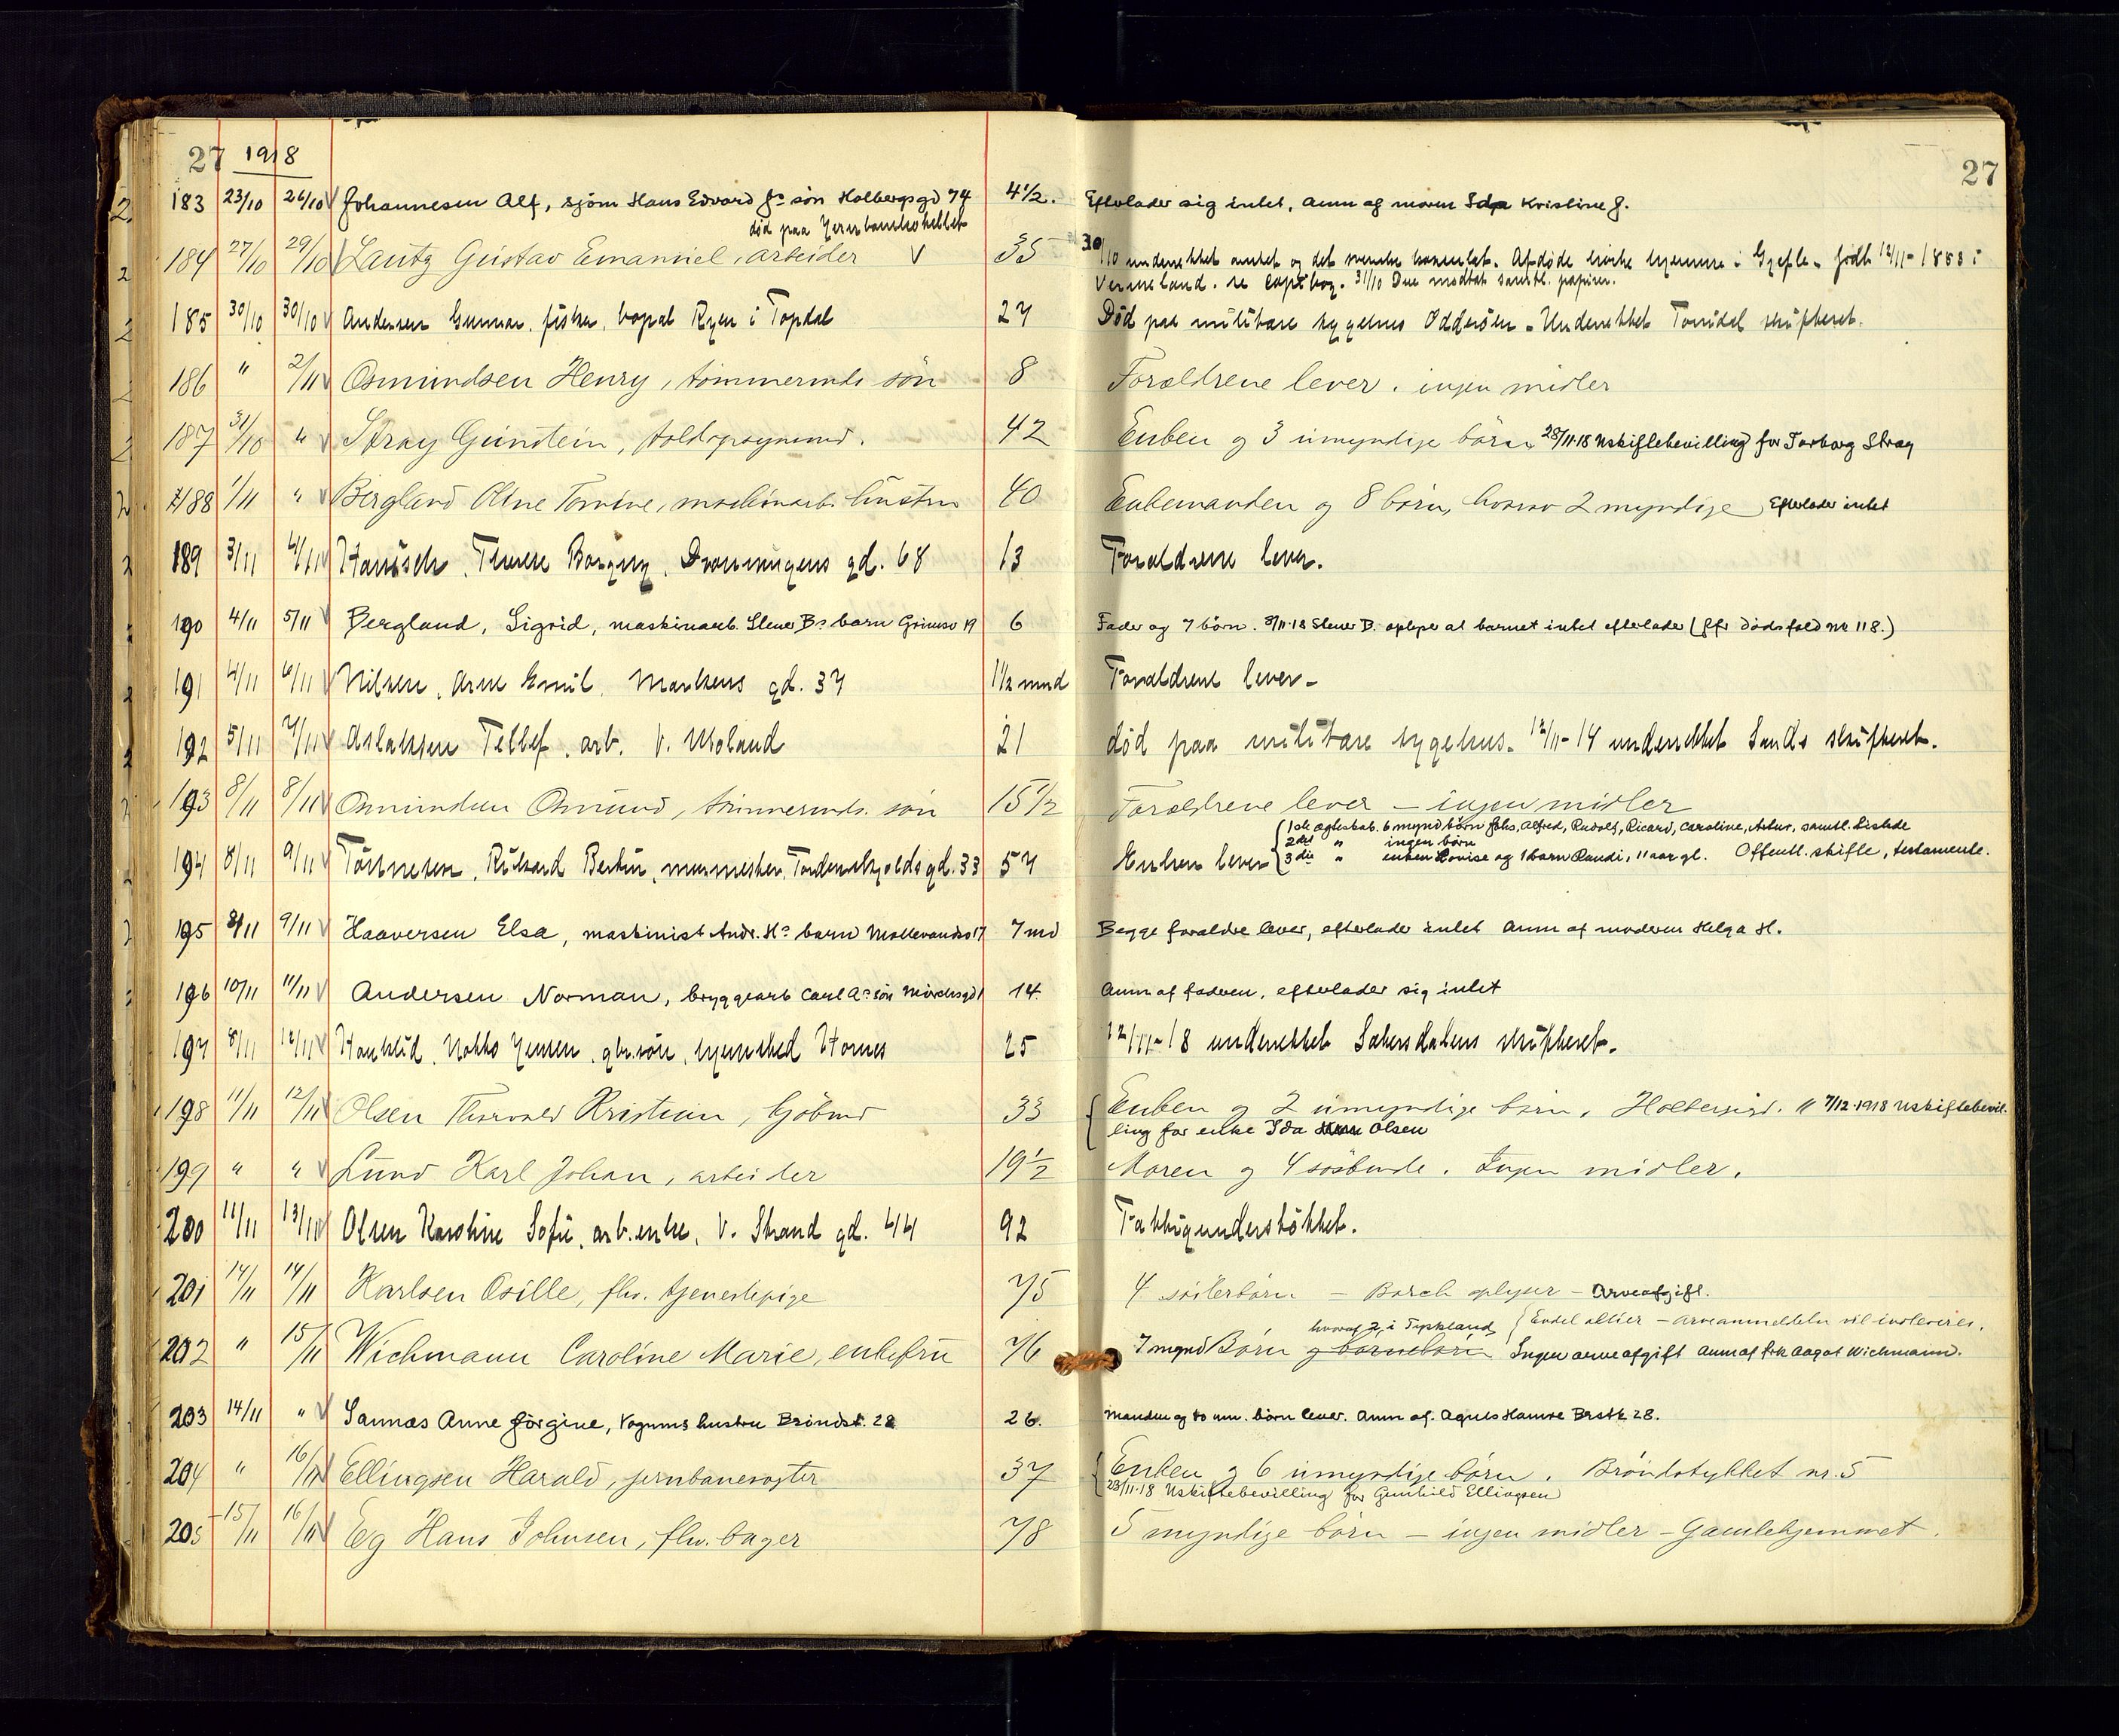 27 1918 27
183 23/10 26/10 Johannesen Alf, sjöm Hans Edvard Js sön Holbergsgd 74 4 1/2. Efterlader sig intet, Anm af moren Ida Kristine J.
död paa Jernbanehotellet
184 27/10 29/10 Lautz Gustav Emanuel, arbeider 55 30/10 underrettet amtet og det svenske konsulat. Afdöde hjemme i Gjefle. født 12/11-1883 i
Vermeland. se kopibog. 31/10 Due modtat samtl. papirer.
185 30/10 30/10 Andersen Gunnar, fisker, bopæl Ryen i Topdal 27 Död paa militære sygehus Odderöen - Underrettet Torridal skifteret.
186 " 2/11 Osmundsen Henry, tömmermds sön 8 Forældrene lever. ingen midler
187 31/10 " Stray Gunstein, toldopsynsmd. 42 Enken og 3 umyndige börn 28/11-18 Uskiftebevilling for Torborg Stray
188 1/11 " Bergland Oline Tomine, maskinarb. hustru 40 Enkemanden og 8 börn, hvorav 2 myndige Efterlader intet
189 3/11 4/11 Hanisch, Therese Borgny, Dronningens gd. 68 13 Forældrene lever.
190 4/11 5/11 Bergland, Sigrid, maskinarb. Stener Bs barn Grimsv 19 6 Fader og 7 börn. 8/11-18 Stener B. oplyser at barnet intet efterlader (jfr dödsfald nr 118.)
191 4/11 6/11 Nilsen, Arne Emil, Markens gd. 37 1 1/2 mnd Forældrene lever -
192 5/11 7/11 Aslaksen Tellef, arb. V. Moland 21 död paa militære sygehus. 12/11-14 underrettet Sands skifteret.
193 8/11 8/11 Osmundsen Osmund, tömmermds. sön 15 1/2 Forældrene lever - ingen midler
194 8/11 9/11 Tönnesen, Rikard Bertin, murmester, Tordenskjolds gd. 33 57 Enken lever { 1ste egteskab. 6 mynd börn Johs, Alfred, Rudolf, Ricard, Caroline, Artur, samtl. tilstede
2det " ingen börn
3die " enken Lovise og 1 barn Randi, 11 aar gl. Offentl. skifte, testamente.
195 8/11 9/11 Haaversen Elsa, maskinist Andr. Hs barn Möllevandsv 17 7 md Begge forældre lever, efterlader intet Anm af moderen Helga H.
196 10/11 11/11 Andersen Norman, bryggearb Carl As sön 14 Anm af faderen, efterlader sig intet
197 8/11 12/11 Jensen, gbr.sön, hjemsted Hornes 25 12/11-18 underrettet Sætersdalens skifteret.
198 11/11 12/11 Olsen Thorvald Kristian, sjömd 33 Enken og 2 umyndige börn, Holbergsgd. 11 7/12-1918 Uskiftebevil-
ling for enke Ida Olsen
199 " " Lund Karl Johan, arbeider 19 1/2 Moren og 4 söskende. Ingen midler.
200 11/11 13/11 Olsen Karoline Sofie, arb.enke, V. Strand gd. 44 92 Fattigunderstöttet.
201 14/11 14/11 Karlsen Osille, fhv. tjenestepige 75 4 sösterbörn - Borch oplyser - Arveafgift.
202 " 15/11 Wichmann Caroline Marie, enkefru 76 7 mynd Börn og barnebörn hvoraf 2 i Tyskland { Endel aktier - arveanmeldelse vil indleveres.
Ingen arveafgift Anm af frk Aagot Wichmann.
203 14/11 " Sannæs Anne Jörgine, Vognms hustru Bröndst. 28 26. Manden og to um. börn lever. Anm af. Agnes Hamre Brstk 28.
204 " 16/11 Ellingsen Harald, jernbanevogter 37 Enken og 6 umyndige börn. Bröndstykket nr. 5
23/11-18 Uskiftebevilling for Gunhild Ellingsen
205 15/11 16/11 Eg Hans Johnsen, fhv. bager 78 5 myndige börn - ingen midler - Gamlehjemmet.